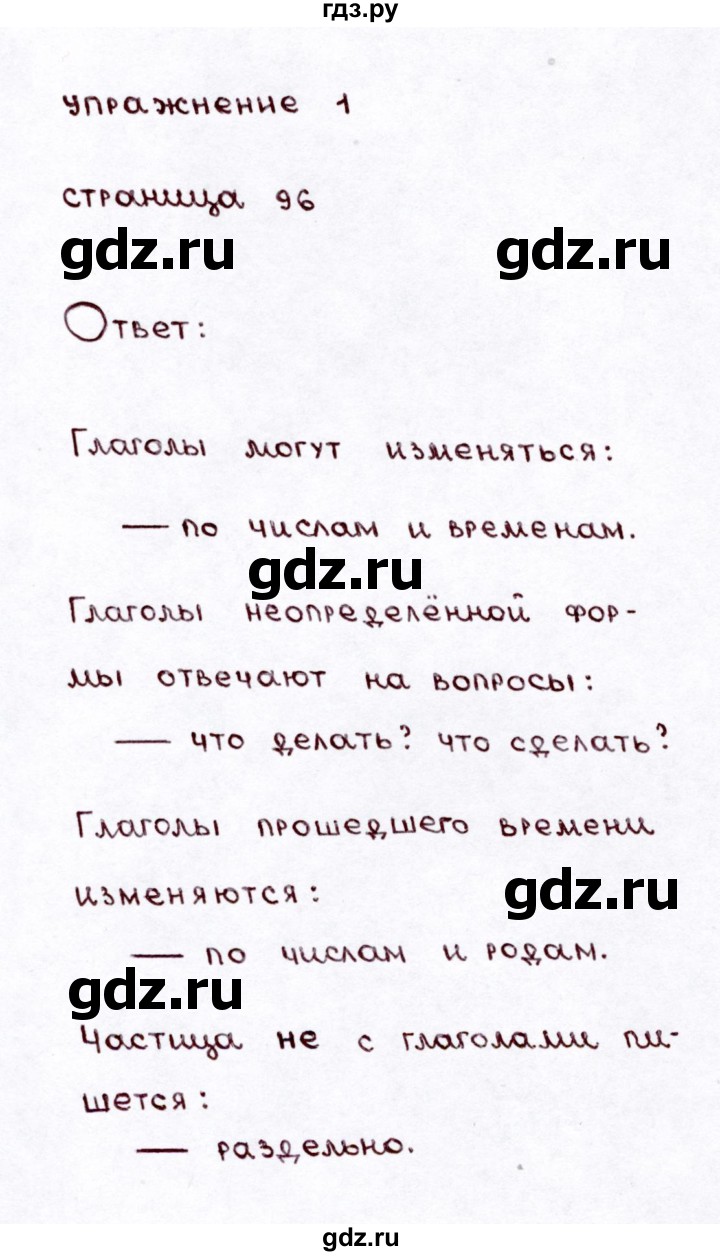 гдз.ру
упражнение 1
страница 96
gdz.ru gdz.ru
Ответ:
Глаголы могут изменяться:
— по числам и временам.
gdz.ru
Глаголы неопределённой фор-
мы отвечают на вопросы:
— что делать? что сделать?
Глаголы прошедшего времени
изменяются:
gdz.ru
— по числам и родам.
gdz.ru
Частица не с глаголами пи-
шется:
— раздельно.
gdz.ru